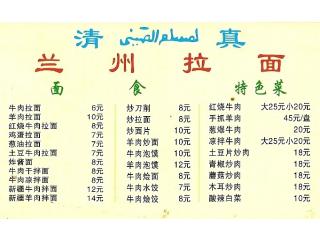 清 真
兰州拉面
面 食 特色菜
牛肉拉面 6元 炒刀削 8元 红烧牛肉 大25元小20元
羊肉拉面 10元 炒拉面 8元 手抓羊肉 45元/盘
红烧牛肉拉面 8元 炒面片 10元 葱爆牛肉 20元
鸡蛋拉面 7元 羊肉炒面 10元 凉拌牛肉 大25元小20元
葱油拉面 7元 牛肉泡馍 10元 土豆片炒肉 18元
土豆牛肉拉面 8元 羊肉泡馍 12元 青椒炒肉 18元
炸酱面 8元 牛肉烩面 8元 蘑菇炒肉 18元
牛肉干拌面 8元 牛肉水饺 7元 木耳炒肉 18元
牛肉凉拌面 8元 牛肉烩饺 8元 酸辣白菜 10元
新疆牛肉拌面 12元
新疆羊肉拌面 14元